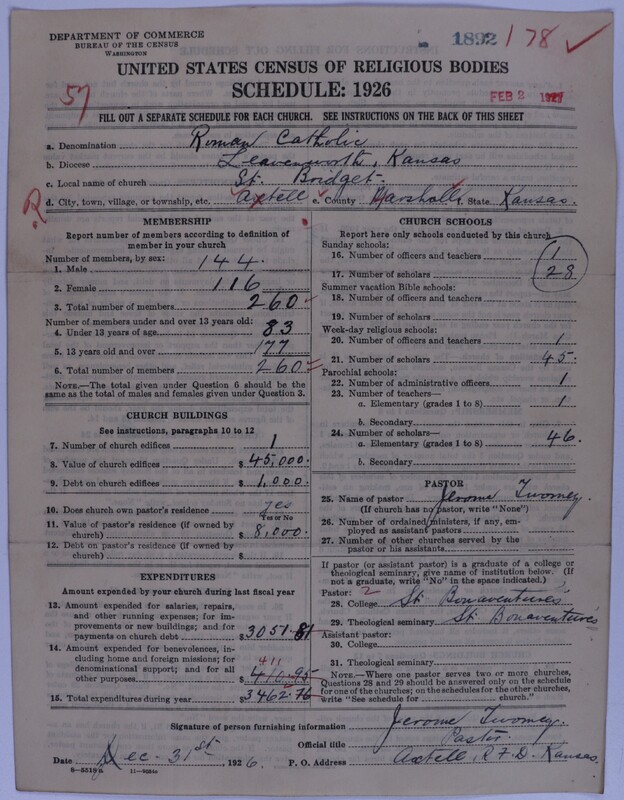 DEPARTMENT OF COMMERCE
BUREAU OF THE CENSUS
WASHINGTON
1892 / 78 ✓
UNITED STATES CENSUS OF RELIGIOUS BODIES
SCHEDULE: 1926
57
FEB 2 1927
FILL OUT A SEPARATE SCHEDULE FOR EACH CHURCH. SEE INSTRUCTIONS ON THE BACK OF THIS SHEET
a. Denomination Roman Catholic
b. Diocese Leavenworth, Kansas
c. Local name of church St. Bridget
d. City, town, village, or township, etc. Axtell e. County Marshall State Kansas.
R
MEMBERSHIP
Report number of members according to definition of
member in your church
Number of members, by sex:
1. Male 144.
2. Female 116
3. Total number of members 260
Number of members under and over 13 years old:
4. Under 13 years of age 83
5. 13 years old and over 177
6. Total number of members 260
NOTE.—The total given under Question 6 should be
same as the total of males and females given under Question 3.
CHURCH BUILDINGS
See instructions, paragraphs 10 to 12
7. Number of church edifices 1
8. Value of church edifices $45,000.
9. Debt on church edifices $1,000.
10. Does church own pastor's residence yes
Yes or No
11. Value of pastor's residence (if owned by
church) $8,000.
12. Debt on pastor's residence (if owned by
church) $
EXPENDITURES
Amount expended by your church during last fiscal year
13. Amount expended for salaries, repairs,
and other running expenses; for im-
provements or new buildings; and for
payments on church debt $3051.81
14. Amount expended for benevolences, in-
cluding home and foreign missions; for
denominational support; and for all
411
other purposes $410.95
15. Total expenditures during year $3462.76
CHURCH SCHOOLS
Report here only schools conducted by this church
Sunday schools:
16. Number of officers and teachers 1
17. Number of scholars 28
Summer vacation Bible schools:
18. Number of officers and teachers
19. Number of scholars
Week-day religious schools:
20. Number of officers and teachers 1
21. Number of scholars 45.
Parochial schools:
22. Number of administrative officers 1
23. Number of teachers—
a. Elementary (grades 1 to 8) 1
b. Secondary
24. Number of scholars—
a. Elementary (grades 1 to 8) 46.
b. Secondary
PASTOR
25. Name of pastor Jerome Twomey.
(If church has no pastor, write "None")
26. Number of ordained ministers, if any, em-
ployed as assistant pastors
27. Number of other churches served by the
pastor or his assistants
If pastor (or assistant pastor) is a graduate of a college or
theological seminary, give name of institution below. (If
not a graduate, write "No" in the space indicated.)
Pastor: 2
28. College St. Bonaventures
29. Theological seminary St. Bonaventures
Assistant pastor:
30. College
31. Theological seminary
NOTE.—Where one pastor serves two or more churches,
Questions 28 and 29 should be answered only on the schedule
for one of the churches; on the schedules for the other churches,
write "See schedule for church."
Signature of person furnishing information Jerome Twomey.
Official title Pastor
Date Dec. 31st, 1926. P. O. Address Axtell, R. F. D. Kansas.